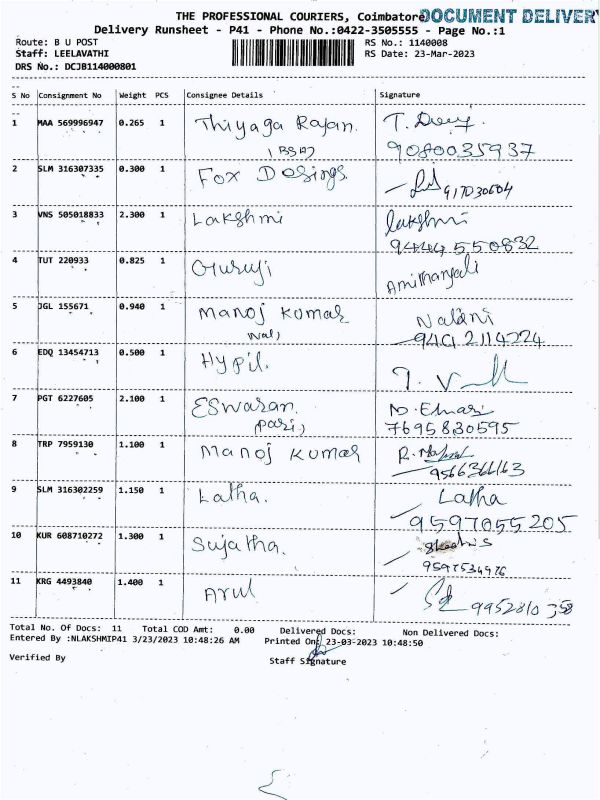 THE PROFESSIONAL COURIERS, Coimbatore
DOCUMENT DELIVERY
Delivery Runsheet - P41 - Phone No.:0422-3505555 - Page No.:1
Route: B U POST
RS No.: 1140008
Staff: LEELAVATHI
RS Date: 23-Mar-2023
DRS No.: DCJB114000801
S No Consignment No Weight PCS Consignee Details Signature
1 MAA 569996947 0.265 1 Thiyaga Rajan.
9080035937
2 SLM 316307335 0.300 1 Fox Desings.
3 VNS 505018833 2.300 1 Lakshmi lakshmi
9444550832
4 TUT 220933 0.825 1 Guruji
5 JGL 155671 0.940 1 Manoj Kumar Nalini
6 EDQ 13454713 0.500 1 Hypil.
7 PGT 6227605 2.100 1 Eswaran.
7695830595
8 TRP 7959130 1.100 1 Manoj Kumar
9 SLM 316302259 1.150 1 Latha. Latha
9597055205
10 KUR 608710272 1.300 1 Sujatha.
11 KRG 4493840 1.400 1 Arul
Total No. Of Docs: 11 Total COD Amt: 0.00 Delivered Docs: Non Delivered Docs:
Entered By :NLAKSHMIP41 3/23/2023 10:48:26 AM Printed On: 23-03-2023 10:48:50
Verified By Staff Signature